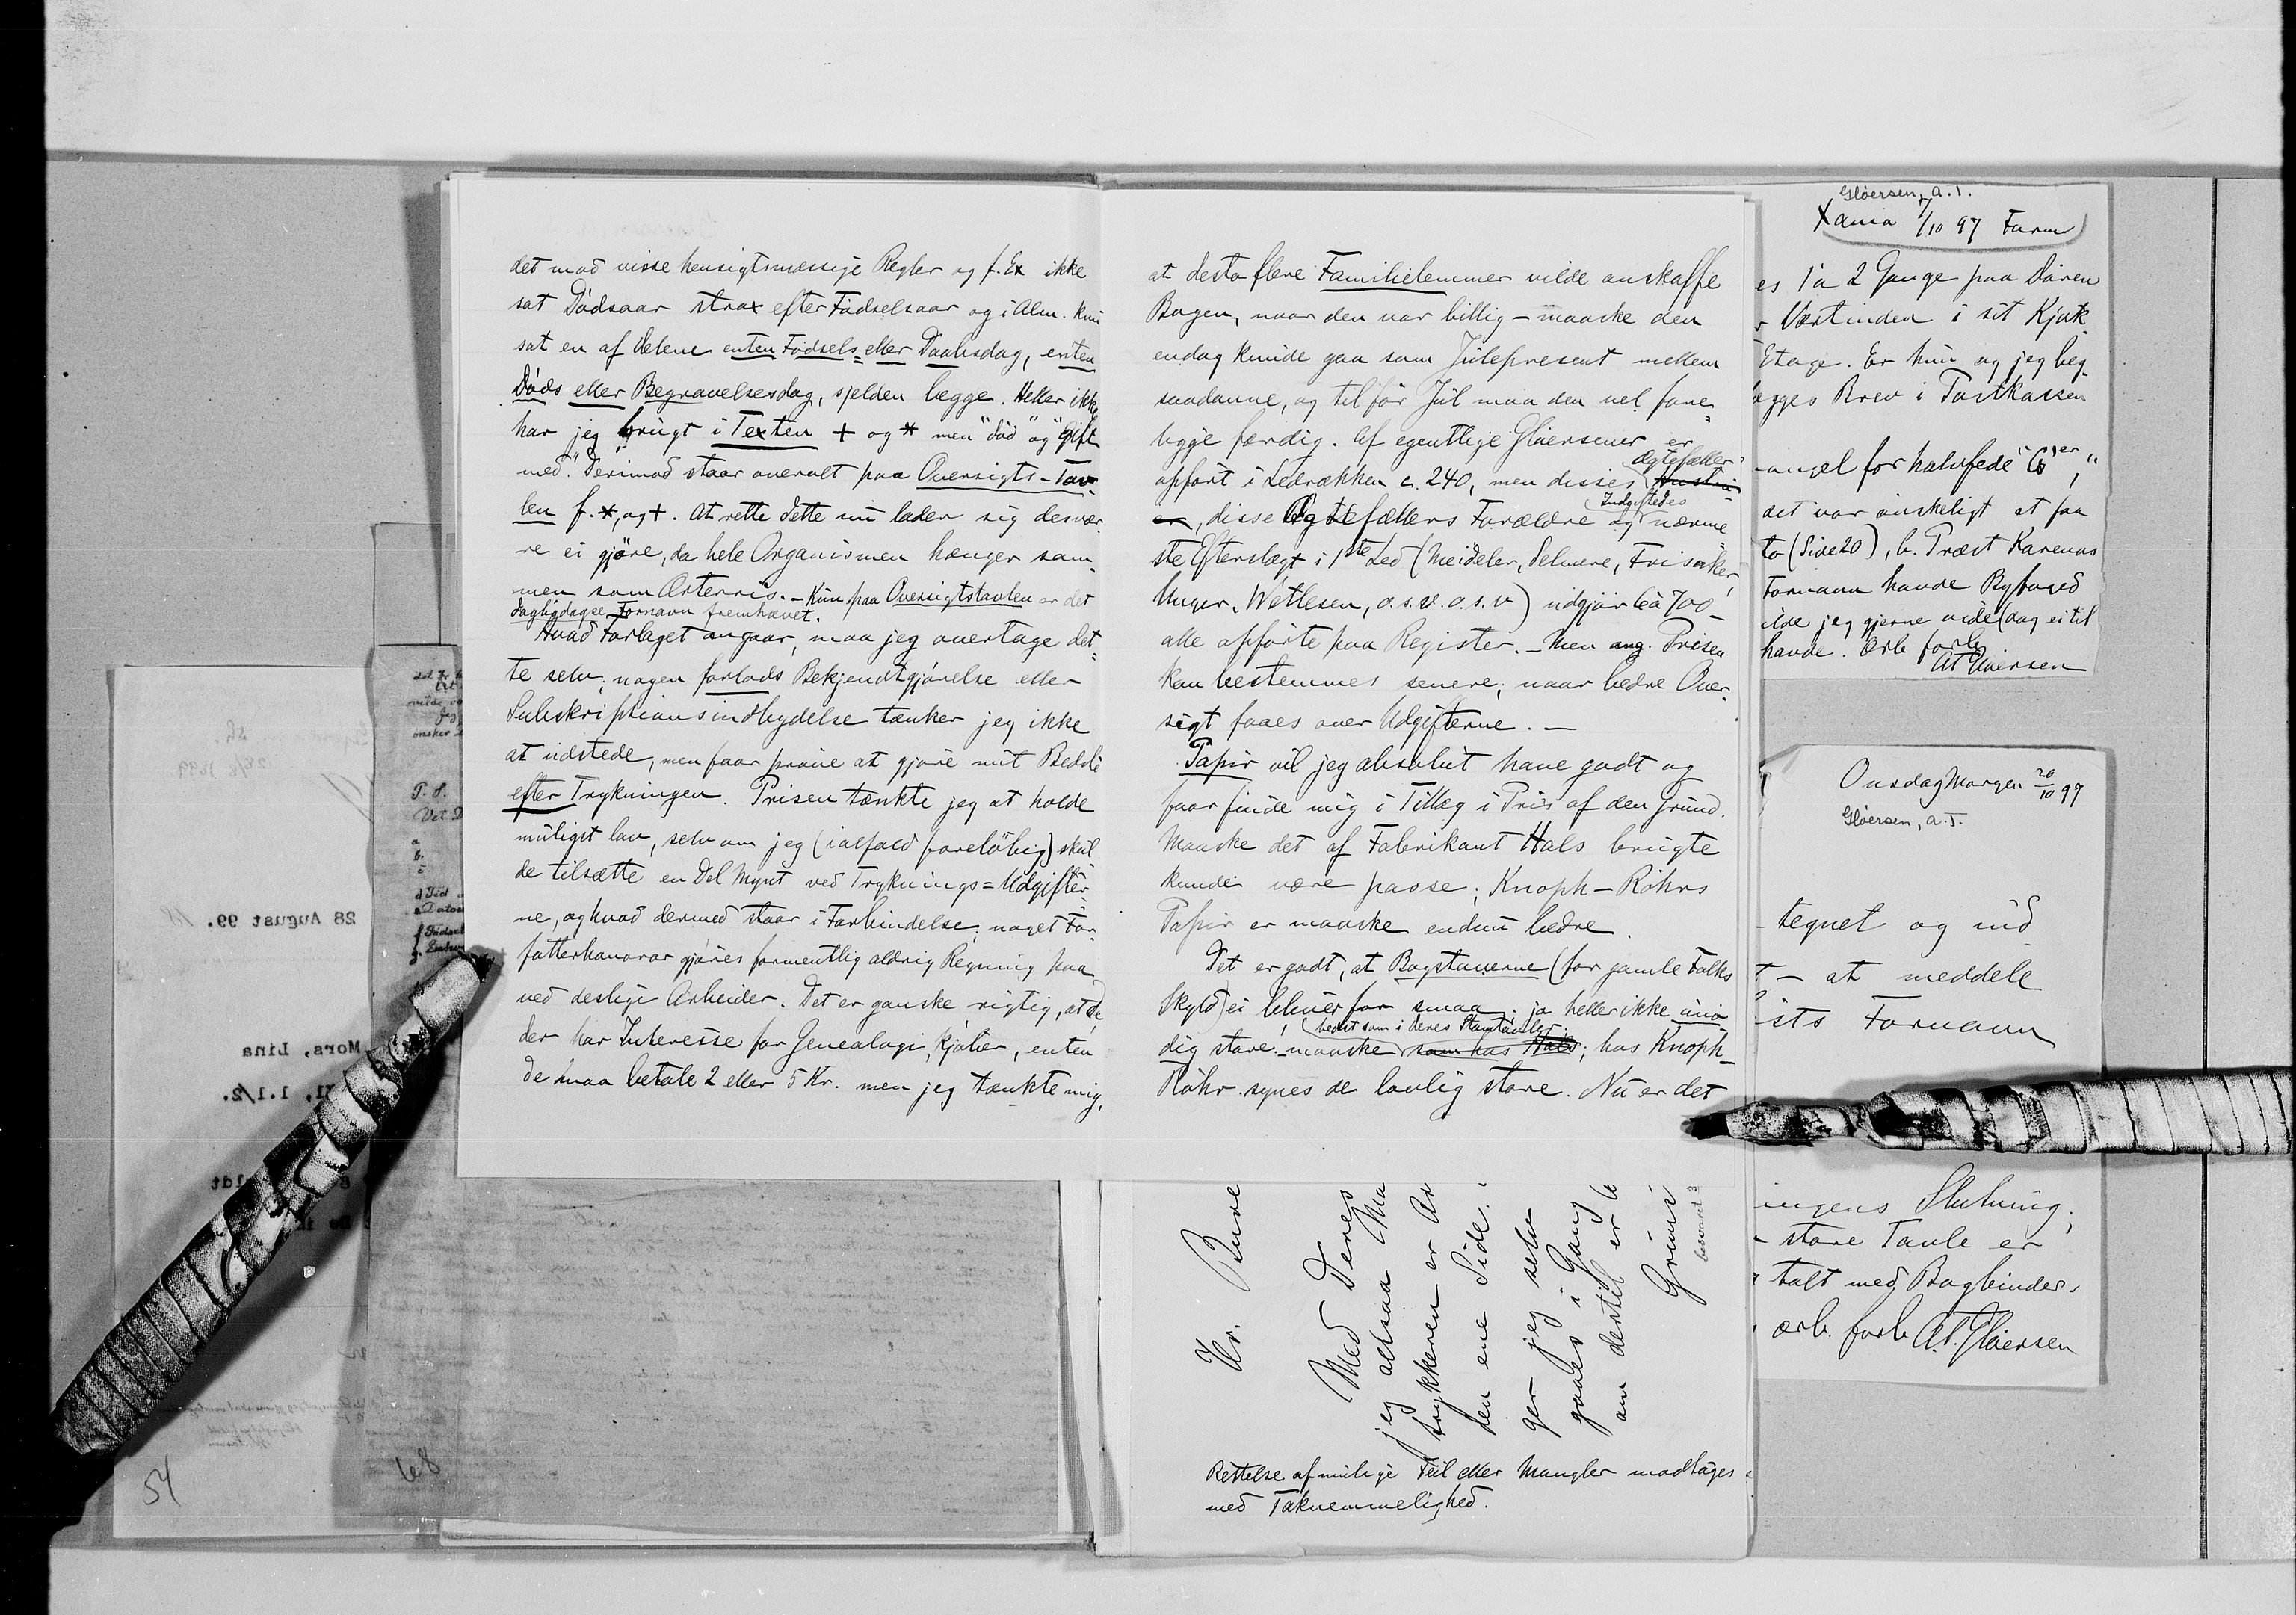 det mod visse hensigtsmæssige Regler og f. Ex ikke
sat Dödsaar strax efter Födselsaar og i Alm. kun
sat en af Delene enten Födsels= eller Daabsdag, enten
Döds eller Begravelsesdag, sjelden begge. Heller ikke
har jeg brugt i Texten + og * men "död" og "gift
med." Derimod staar overalt paa Oversigts-Tav-
len f. *, og +. At rette dette nu lader sig desvær-
re ei gjöre, da hele Organismen hænger sam-
men som Ærterris. - Kun paa Oversigtstavlen er det
dagligdagse Fornavn fremhævet.
Hvad Forlaget angaar, maa jeg overtage det-
te selv; nogen forlods Bekjendtgjörelse eller
Subskriptionsindbydelse tænker jeg ikke
at udstede, men faar pröve at gjöre mit Bedste
efter Trykningen. Prisen tænkte jeg at holde
muligst lav, selv om jeg (ialfald foreløbig) skul
de tilsætte en Del Mynt ved Tryknings=Udgifter-
ne, og hvad dermed staar i Forbindelse; noget For-
fatterhonorar gjöres formentlig aldrig Regning paa
ved deslige Arbeider. Det er ganske rigtig, at de,
der har Interesse for Genealogi, kjöber, enten
de maa betale 2 eller 5 Kr. men jeg tænkte mig,
at desto flere Familielemmer vilde anskaffe
Bogen, naar den var billig - maaske den
endog kunde gaa som Julepresent mellem
saadanne, og til för Jul maa den vel fore-
ligge færdig. Af egentlige Gløersener er
opført i Ledrækken c. 240, men disses Ægtefæller
, disse Ægtefællers Forældre og Indgiftedes nærme
ste Efterslægt i 1ste Led (Meideler, Selmere, Frisaker,
Unger, Wetlesen, o.s.v. o.s.v) udgjör
alle opförte paa Register. - Men ang. Prisen
kan bestemmes senere, naar bedre Over-
sigt faaes over Udgifterne. -
Papir vil jeg absolut have godt og
faar finde mig i Tillæg i Pris af den Grund.
Maaske det af Fabrikant Hals brugte
kunde være passe; Knoph-Röhrs
Papir er maaske endnu bedre.
Det er godt, at Bogstaverne (for gamle Folks
Skyld) ei bliver for smaa, ja heller ikke unö
dig store. - maaske (helst som i Deres Stamtavler) som hos Hals; hos Knoph-
Röhr synes de lovlig store. Nu er det
Hr.
Med Deres
jeg altsaa Ma
trykkeren er Ar
den ene Side.
ger jeg selv
gaaes i Gang
om dertil er
besvaret
Rettelse af mulige Feil eller Mangler modtages
med Taknemmelighed.
Gløersen, A.T.
Xania 1/10 97
es 1 à 2 Gange paa Dören
Værtinden i sit Kjøk
Etage. Er hun og jeg beg
lægges Brev i Postkassen
angel for halvfede "G'er",
det var önskeligt at faa
to (Side 20), b. Præst Karenas
Fornavn havde Byfoged
ilde jeg gjerne vide (dog ei til
havde. Ærb forb
AT Gløersen
Onsdag Morgen 20/10 97
Gløersen, A.T.
tegnet og ind
- at meddele
ists Fornavn
ingens Slutning;
store Tavle er
talt med Bogbinder.
ærb. forb A.T. Gløersen
28 August 99.
Mors, Lina
1.1/2.
54
68